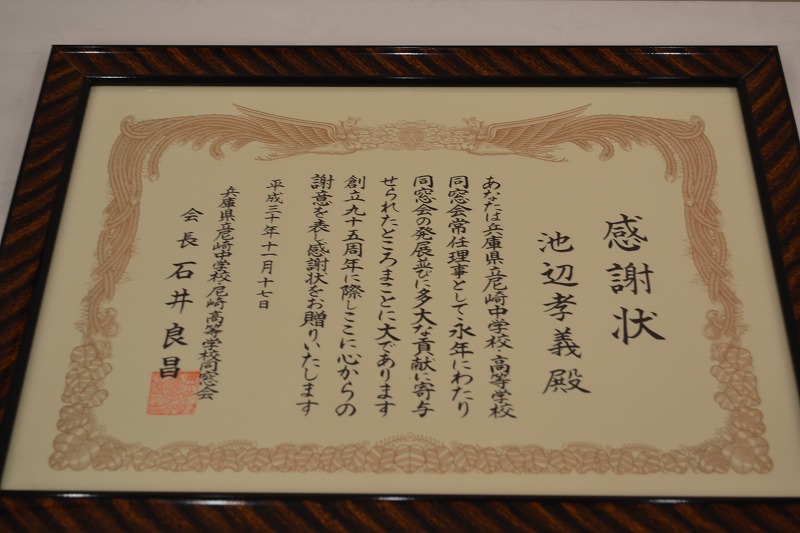 感謝状
池辺孝義殿
あなたは兵庫県立尼崎中学校・高等学校
同窓会常任理事として永年にわたり
同窓会の発展並びに多大な貢献に寄与
せられたところまことに大であります
創立九十五周年に際しここに心からの
謝意を表し感謝状をお贈りいたします
平成三十年十一月十七日
兵庫県立尼崎中学校・尼崎高等学校同窓会
会長 石井良昌